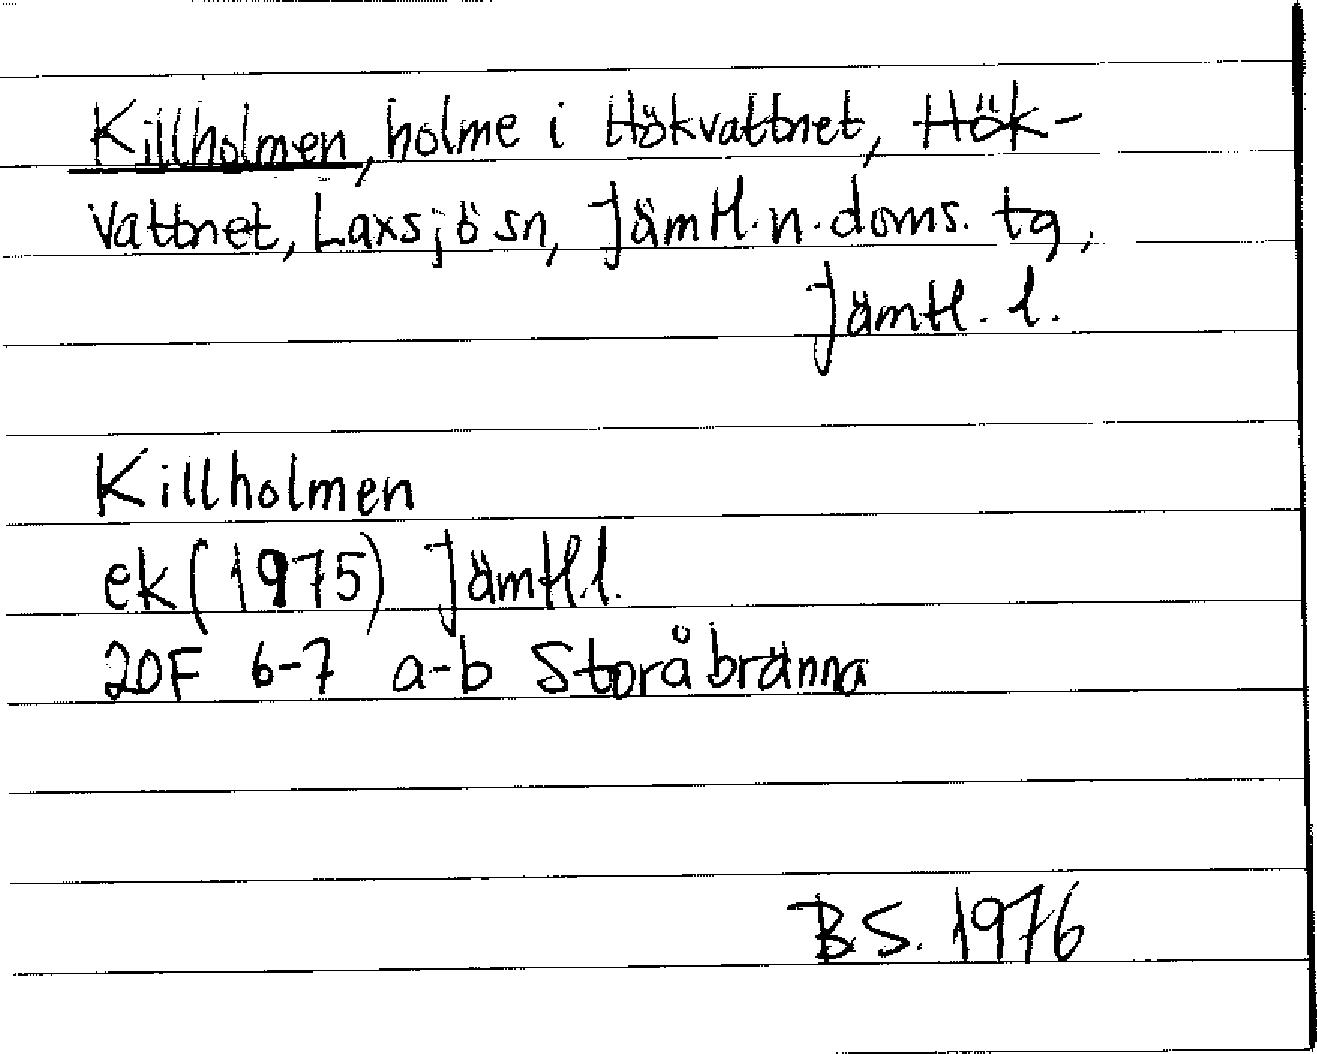 Killholmen, holme i Hökvattnet, Hök-
vattnet, Laxsjö sn, Jämtl. n. doms. tg,
Jämtl. l.
Killholmen
ek (1975) Jämtl.l.
20F 6-7 a-b Storåbränna
B.S. 1976